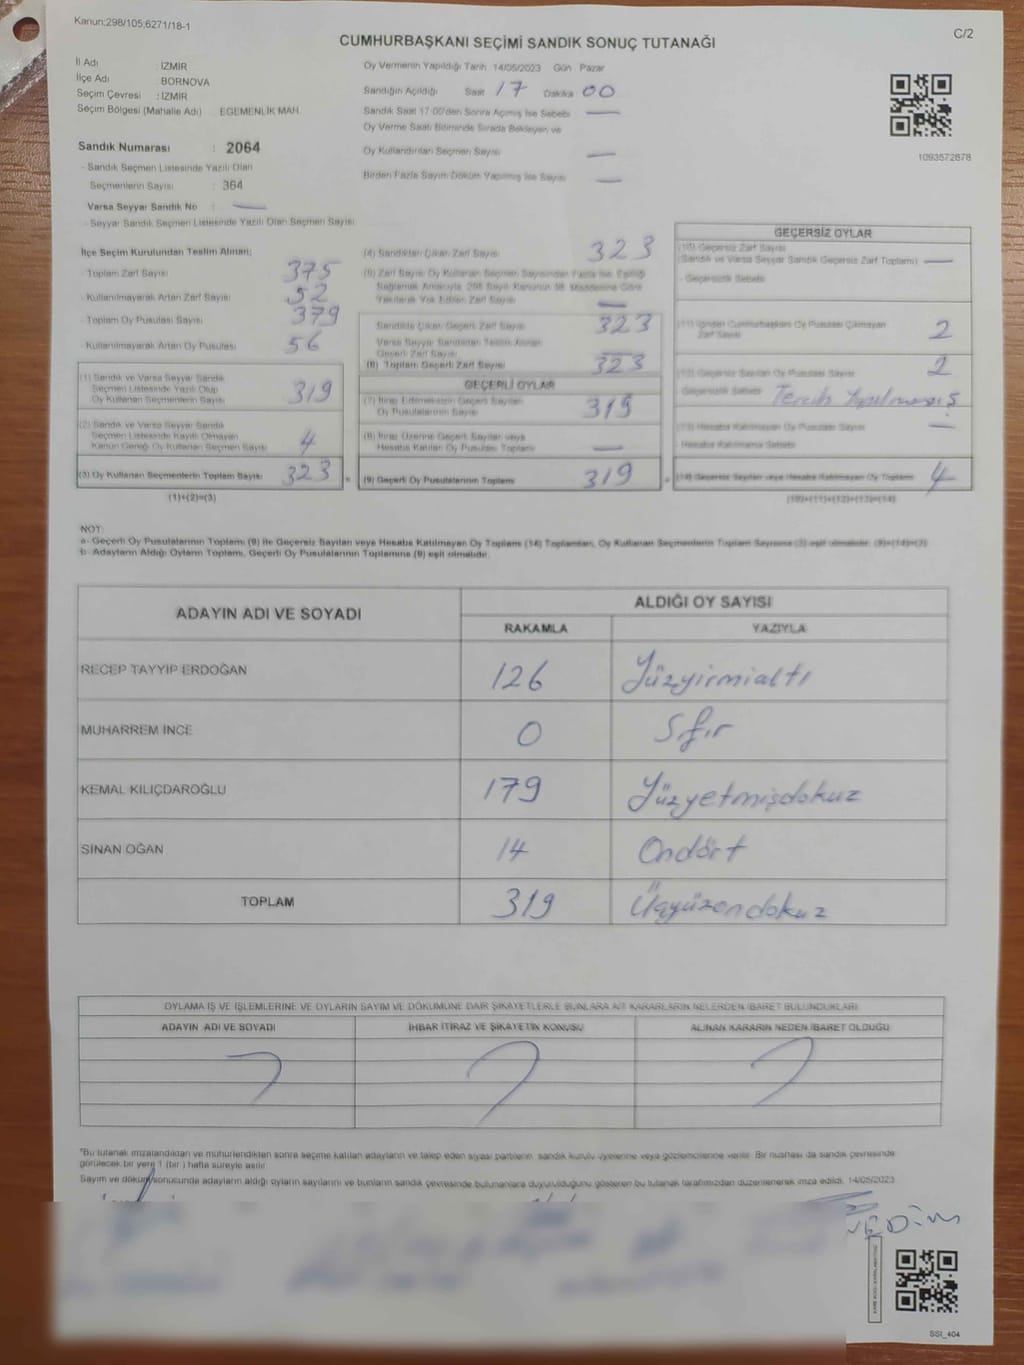 Kanun;298/105;6271/18-1
C/2
CUMHURBAŞKANI SEÇİMİ SANDIK SONUÇ TUTANAĞI
İl Adı : İZMİR
İlçe Adı : BORNOVA
Seçim Çevresi : İZMİR
Seçim Bölgesi (Mahalle Adı) EGEMENLİK MAH.
Sandık Numarası : 2064
- Sandık Seçmen Listesinde Yazılı Olan
Seçmenlerin Sayısı : 364
Varsa Seyyar Sandık No : —
- Seyyar Sandık Seçmen Listesinde Yazılı Olan Seçmen Sayısı
Oy Vermenin Yapıldığı Tarih 14/05/2023 Gün Pazar
Sandığın Açıldığı Saat 17 Dakika 00
Sandık Saat 17:00'den Sonra Açılmış İse Sebebi —
Oy Verme Saati Bitiminde Sırada Bekleyen ve
Oy Kullandırılan Seçmen Sayısı —
Birden Fazla Sayım Döküm Yapılmış İse Sayısı —
1093572878
İlçe Seçim Kurulundan Teslim Alınan;
- Toplam Zarf Sayısı 375
- Kullanılmayarak Artan Zarf Sayısı 52
- Toplam Oy Pusulası Sayısı 379
- Kullanılmayarak Artan Oy Pusulası 56
(1) Sandık ve Varsa Seyyar Sandık
Seçmen Listesinde Yazılı Olup
Oy Kullanan Seçmenlerin Sayısı 319
(2) Sandık ve Varsa Seyyar Sandık
Seçmen Listesinde Kayıtlı Olmayan
Kanun Gereği Oy Kullanan Seçmen Sayısı 4
(3) Oy Kullanan Seçmenlerin Toplam Sayısı 323
(1)+(2)=(3)
(4) Sandıktan Çıkan Zarf Sayısı 323
(5) Zarf Sayısı Oy Kullanan Seçmen Sayısından Fazla İse, Eşitliği
Sağlamak Amacıyla 298 Sayılı Kanunun 98. Maddesine Göre
Yakılarak Yok Edilen Zarf Sayısı —
Sandıkta Çıkan Geçerli Zarf Sayısı 323
Varsa Seyyar Sandıktan Teslim Alınan
Geçerli Zarf Sayısı —
(6) Toplam Geçerli Zarf Sayısı 323
GEÇERLİ OYLAR
(7) İtiraz Edilmeksizin Geçerli Sayılan
Oy Pusulalarının Sayısı 319
(8) İtiraz Üzerine Geçerli Sayılan veya
Hesaba Katılan Oy Pusulası Toplamı —
(9) Geçerli Oy Pusulalarının Toplamı 319
GEÇERSİZ OYLAR
(10) Geçersiz Zarf Sayısı
(Sandık ve Varsa Seyyar Sandık Geçersiz Zarf Toplamı) —
- Geçersizlik Sebebi
(11) İçinden Cumhurbaşkanı Oy Pusulası Çıkmayan
Zarf Sayısı 2
(12) Geçersiz Sayılan Oy Pusulası Sayısı 2
- Geçersizlik Sebebi Tercih Yapılmamış
(13) Hesaba Katılmayan Oy Pusulası Sayısı —
- Hesaba Katılmama Sebebi
(14) Geçersiz Sayılan veya Hesaba Katılmayan Oy Toplamı 4
(10)+(11)+(12)+(13)=(14)
NOT:
a- Geçerli Oy Pusulalarının Toplamı (9) ile Geçersiz Sayılan veya Hesaba Katılmayan Oy Toplamı (14) Toplamları, Oy Kullanan Seçmenlerin Toplam Sayısına (3) eşit olmalıdır. (9)+(14)=(3)
b- Adayların Aldığı Oyların Toplamı, Geçerli Oy Pusulalarının Toplamına (9) eşit olmalıdır.
ADAYIN ADI VE SOYADI ALDIĞI OY SAYISI
RAKAMLA YAZIYLA
RECEP TAYYİP ERDOĞAN 126 Yüzyirmialtı
MUHARREM İNCE 0 Sıfır
KEMAL KILIÇDAROĞLU 179 Yüzyetmişdokuz
SİNAN OĞAN 14 Ondört
TOPLAM 319 Üçyüzondokuz
OYLAMA İŞ VE İŞLEMLERİNE VE OYLARIN SAYIM VE DÖKÜMÜNE DAİR ŞİKAYETLERLE BUNLARA AİT KARARLARIN NELERDEN İBARET BULUNDUKLARI
ADAYIN ADI VE SOYADI İHBAR İTİRAZ VE ŞİKAYETİN KONUSU ALINAN KARARIN NEDEN İBARET OLDUĞU
"Bu tutanak imzalandıktan ve mühürlendikten sonra seçime katılan adayların ve talep eden siyasi partilerin, sandık kurulu üyelerine veya gözlemcilerine verilir. Bir nüshası da sandık çevresinde
görülecek bir yere 1 (bir ) hafta süreyle asılır.
Sayım ve döküm sonucunda adayların aldığı oyların sayılarını ve bunların sandık çevresinde bulunanlara duyurulduğunu gösteren bu tutanak tarafımızdan düzenlenerek imza edildi. 14/05/2023
SSI_404